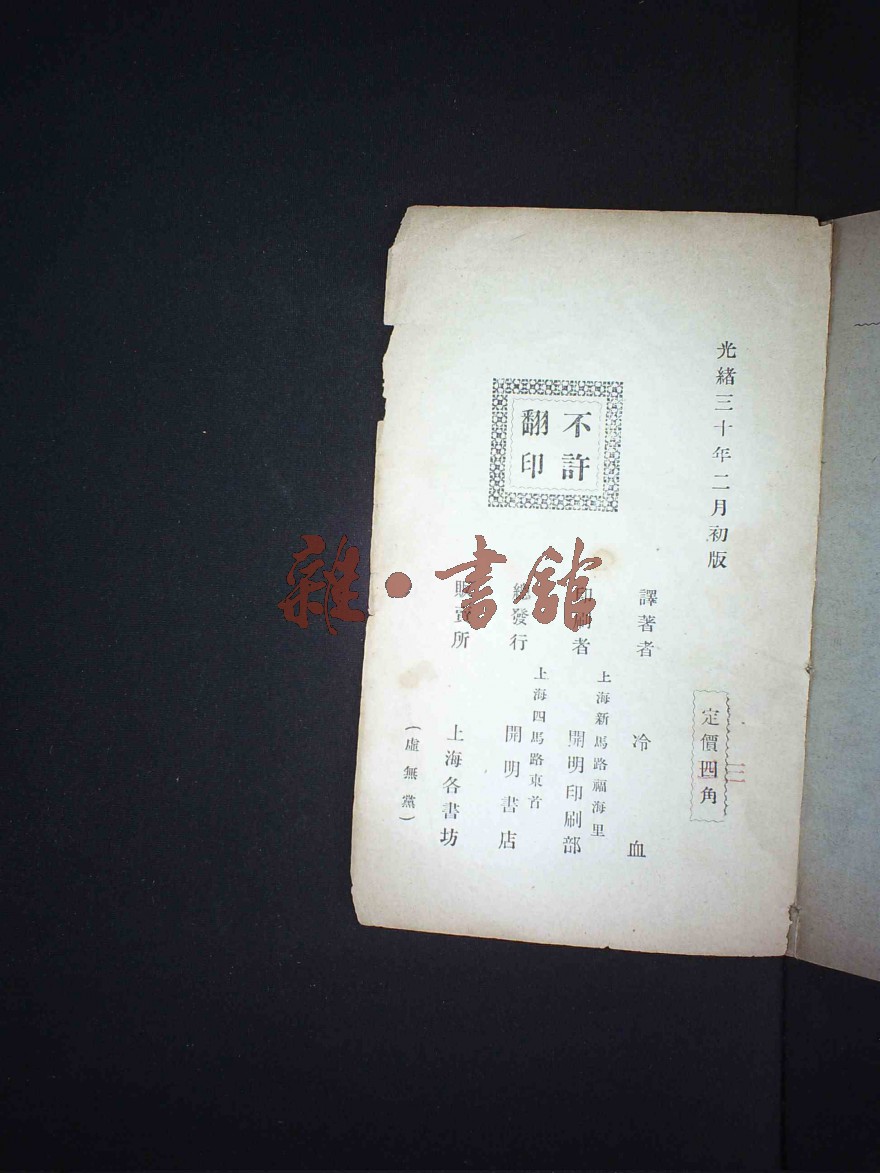 光緒三十年二月初版
定價四角
三
譯著者 冷血
印刷者 上海新馬路福海里 開明印刷部
總發行 上海四馬路東首 開明書店
販賣所 上海各書坊
(虛無黨)
不許
翻印
雜·書館